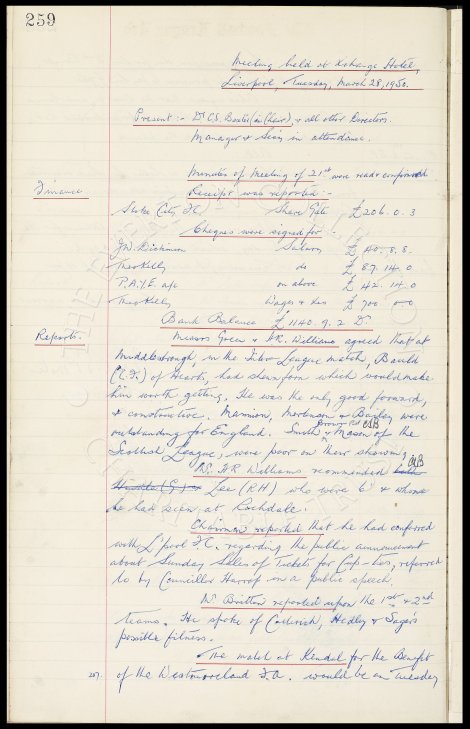 259
Meeting held at Exchange Hotel,
Liverpool, Tuesday, March 28, 1950.
Present :- Dr C.S. Baxter (in Chair), & all other Directors.
Manager & Secy in attendance.
Minutes of Meeting of 21st were read & confirmed
Finance
Receipt was reported :-
Stoke City F.C. Share Gate £206. 0. 3
Cheques were signed for :-
J.W. Dickinson Salary £ 40. 8. 8.
Theo Kelly do £ 87. 14. 0
P.A.Y.E. a/c on above £ 42. 14. 0
Theo Kelly Wages &c £ 700
Bank Balance £1140. 9. 2 Dr.
Reports.
Messrs Green & H.R. Williams agreed that at
Middlesbrough, in the Inter League match, Bauld
(C.F.) of Hearts, had shewn form which would make
him worth getting. He was the only good forward,
& constructive. Mannion, Mortensen & Bailey were
outstanding for England. Smith & Mason of the
Scottish League, were poor on their showing. CSB
Mr. H.R. Williams recommended
Lee (RH) who were 6' & whom
he had seen at Rochdale.
Chairman reported that he had conferred
with L'pool F.C. regarding the public announcement
about Sunday Sales of Tickets for Cup-ties, referred
to by Councillor Harrop in a public speech.
Mr. Britton reported upon the 1st & 2nd
teams. He spoke of Corbrish, Hedley & Sagar's
possible fitness.
The match at Kendal for the Benefit
287. of the Westmoreland F.A. would be on Tuesday